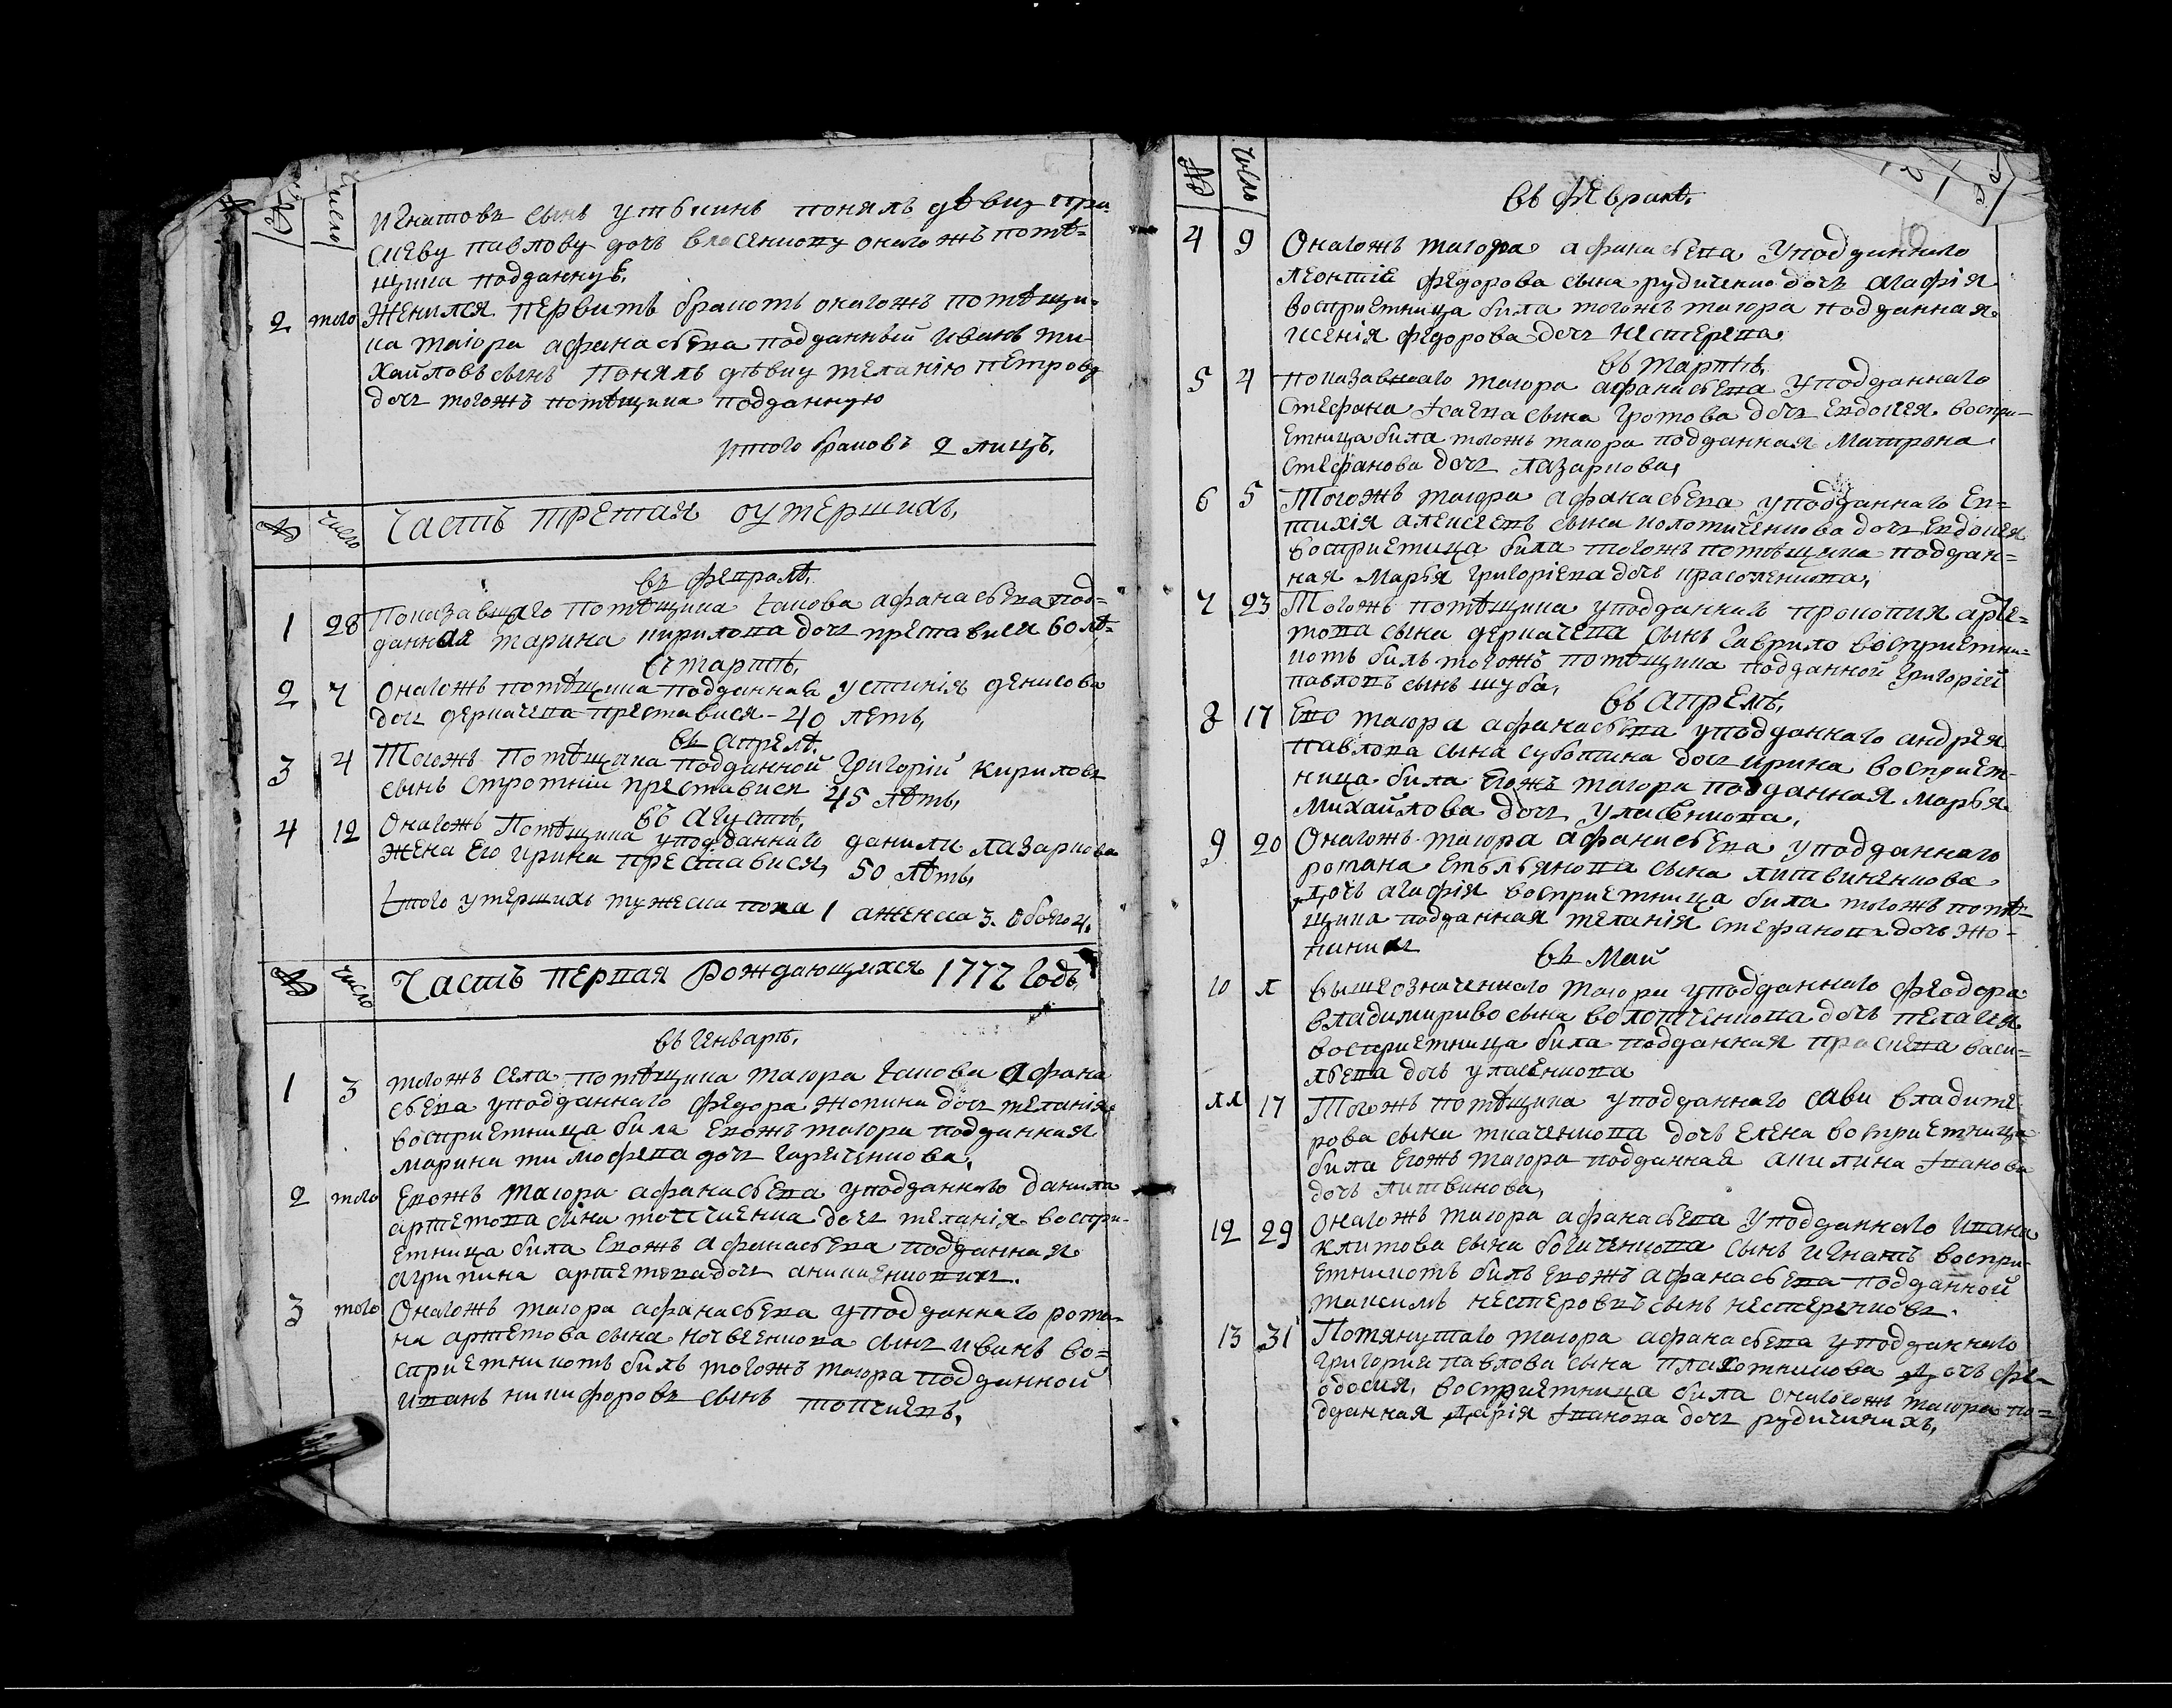 № число
Игнатовъ сынъ понялъ дѣвку
павлову дочъ оногожъ помѣ-
щика подданную.
2 того Женился первимъ бракомъ оногожъ помѣщи-
ка маіора афанасьева подданный Иванъ ми-
хайловъ сынъ Понялъ дѣвку меланію петрову
дочь тогожъ помѣщика подданную
итого браковъ 2 лицъ.
№ число Часть третая оумершихъ,
въ февралѣ.
1 28 Показавшаго помѣщика іакова афанасьева под-
данная марина кирилова дочь преставися 60 лѣ-
въ мартѣ,
2 7 Оногожъ помѣщика подданная устинія денисова
дочь деркачева преставися - 40 летъ,
въ апрелѣ.
3 4 Тогожъ Помѣщика подданной Григорій Кириловъ
сынъ преставися 45 лѣтъ,
въ Агустѣ,
4 12 Оногожъ Помѣщика уподданнаго данили лазаркова
жена Его ирина преставися, 50 лѣтъ,
Итого умершихъ мужеска пола 1 аженска 3. обоего 4.
№ число Часть первая Рождающихся 1777 Годъ,
въ Генварѣ,
1 3 тогожъ села помѣщика маіора іакова Афана
сьева уподданнаго Федора жопини дочь меланія
восприемница била Евожъ маіора подданная
марина тимофева дочь
2 того Евожъ маіора афанасьева уподданнаго данила
артемова сина дочь меланія воспри-
емница била Евожъ Афанасьева подданная
агрипина артемова дочь
3 того Оногожъ маіора афанасьева уподданнаго рома-
на артемова сына сынъ иванъ во-
сприемникомъ билъ тогожъ маіора подданной
иванъ никифоровъ сынъ
№ число
въ февралѣ.
4 9 Оногожъ маіора афанасьева Уподданнаго
леонтіе федорова сына рудиченко дочь агафія
восприемница била тогожъ маіора подданная
ксенія федорова дочь нестерева
въ мартѣ,
5 4 показавшаго маіора афанасьева уподданнаго
Стефана Ісаева сына громова дочь Евдокея воспри-
емница била тогожъ маіора подданная Матрона
стефанова дочь лазаркова,
6 5 Тогожъ маіора афанасьева уподданнаго Ев-
тихія алексеевъ сына дочь Евдокея
восприемница била тогожъ помѣщика поддан-
ная марья григоріева дочь
7 23 Тогожъ помѣщика уподданнаго прокопия арте-
мова сына деркачева сынъ гаврило восприемни-
комъ билъ тогожъ помѣщика подданной григорій
павловъ сынъ шуба,
въ Апрелѣ,
8 17 Ево маіора афанасьева уподданнаго андрея
павлова сына суботина дочь ирина восприем-
ница била Егожъ маіора подданная марья
михайлова дочь
9 20 Оногожъ маіора афанасьева уподданнаго
романа Емельянова сына литвиненкова
дочь агафія восприемница била тогожъ помѣ-
щика подданная меланія стефанова дочь жо-
въ Май
10 л Вышеозначеннаго маіора уподданнаго феодора
владимирово сына дочь пелагея
восприемница била подданная васи-
льева дочь
лл 17 Тогожъ помѣщика уподданнаго сави владиме-
рова сына ткаченкова дочь елена восприемница
била Егожъ маіора подданная акилина Іванова
дочь литвинова,
12 29 Оногожъ маіора афанасьева уподданнаго ивана
климова сына сынъ игнатъ воспри-
емникомъ билъ Евожъ афанасьева подданной
максимъ нестеровичъ сынъ нестеренковъ.
13 31 Помянутаго маіора афанасьева уподданнаго
григория павлова сына плахотникова дочь фе-
одосия, восприемница била оногожъ маіора по-
дданная Дарія Іванова дочь